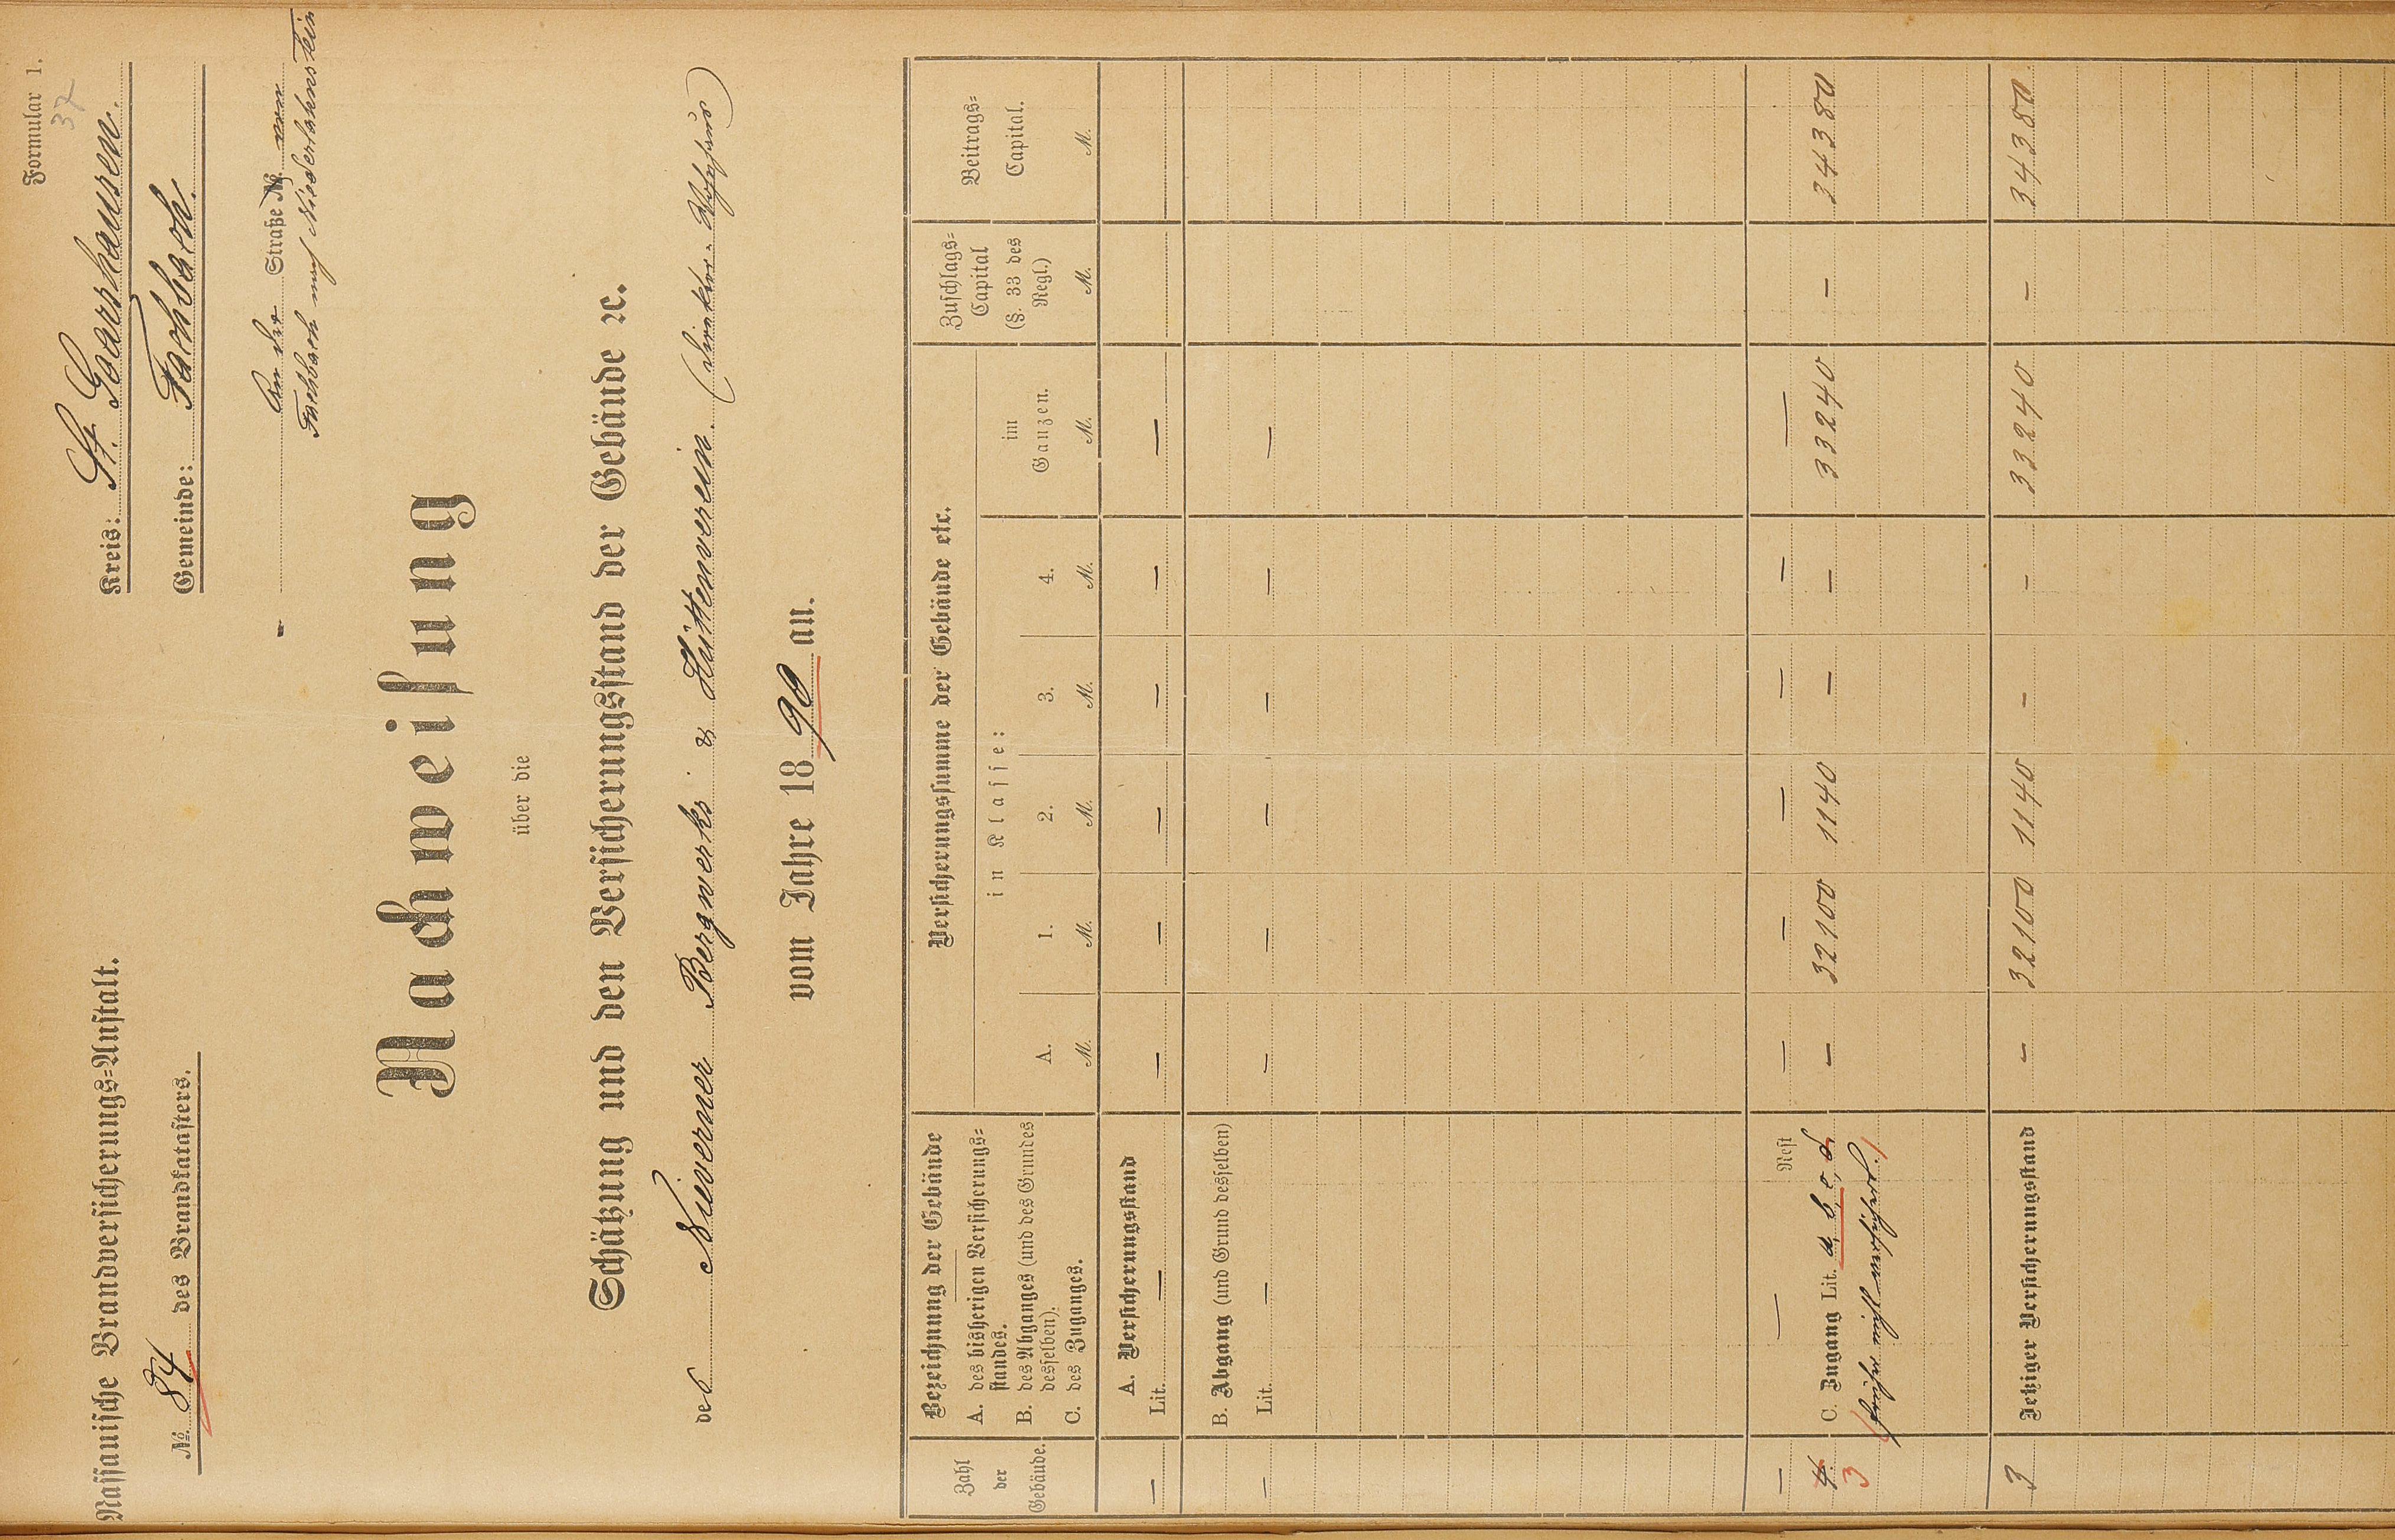 Formular 1.
37
Nassauische Brandversicherungs-Anstalt.
Kreis: St. Goarshausen.
№ 84 des Brandkatasters.
Gemeinde: Fachbach.
An der Straße №. von
Fachbach nach Niederlahnstein
Nachweisung
über die
Schätzung und den Versicherungsstand der Gebäude ꝛc.
des Nieverner Bergwerks & Hüttenverein. (Direktor-Wohnhaus)
vom Jahre 1890 an.
Zahl der Gebäude.
Bezeichnung der Gebäude
A. des bisherigen Versicherungs-
standes.
B. des Abganges (und des Grundes
desselben).
C. des Zuganges.
Versicherungssumme der Gebäude etc.
in Klasse:
A. 1. 2. 3. 4. im Ganzen.
M. M. M. M. M. M.
Zuschlags-
Capital
(§. 33 des
Regl.)
M.
Beitrags-
Capital.
M.
— A. Versicherungsstand
Lit. — — — — — — —
B. Abgang (und Grund desselben)
— Lit. — — — — — — —
— — Rest — — — — — —
4. C. Zugang Lit. a, b, c, d. — 32100 1140 — — 33240 — 34380
3 (früher nicht versichert.)
3 Jetziger Versicherungsstand — 32100 1140 — — 33240 — 34380.